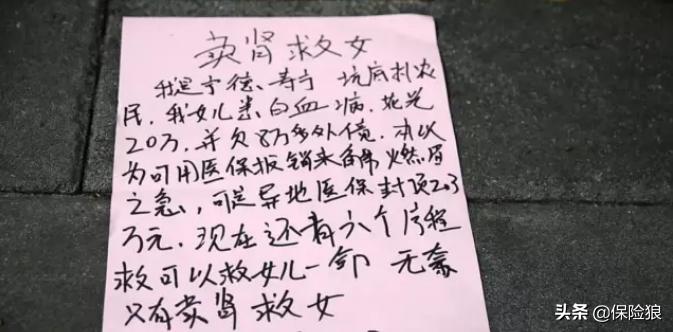 卖肾救女
我是宁德、寿宁 坑底村农
民,我女儿患白血病,花光
20万,并欠8万多外债,本以
为可用医保报销来解燃眉
之急,可是异地医保封顶2.3
万元,现在还有六个疗程
救可以救女儿一命 无奈
只有卖肾救女
头条 @保险狼